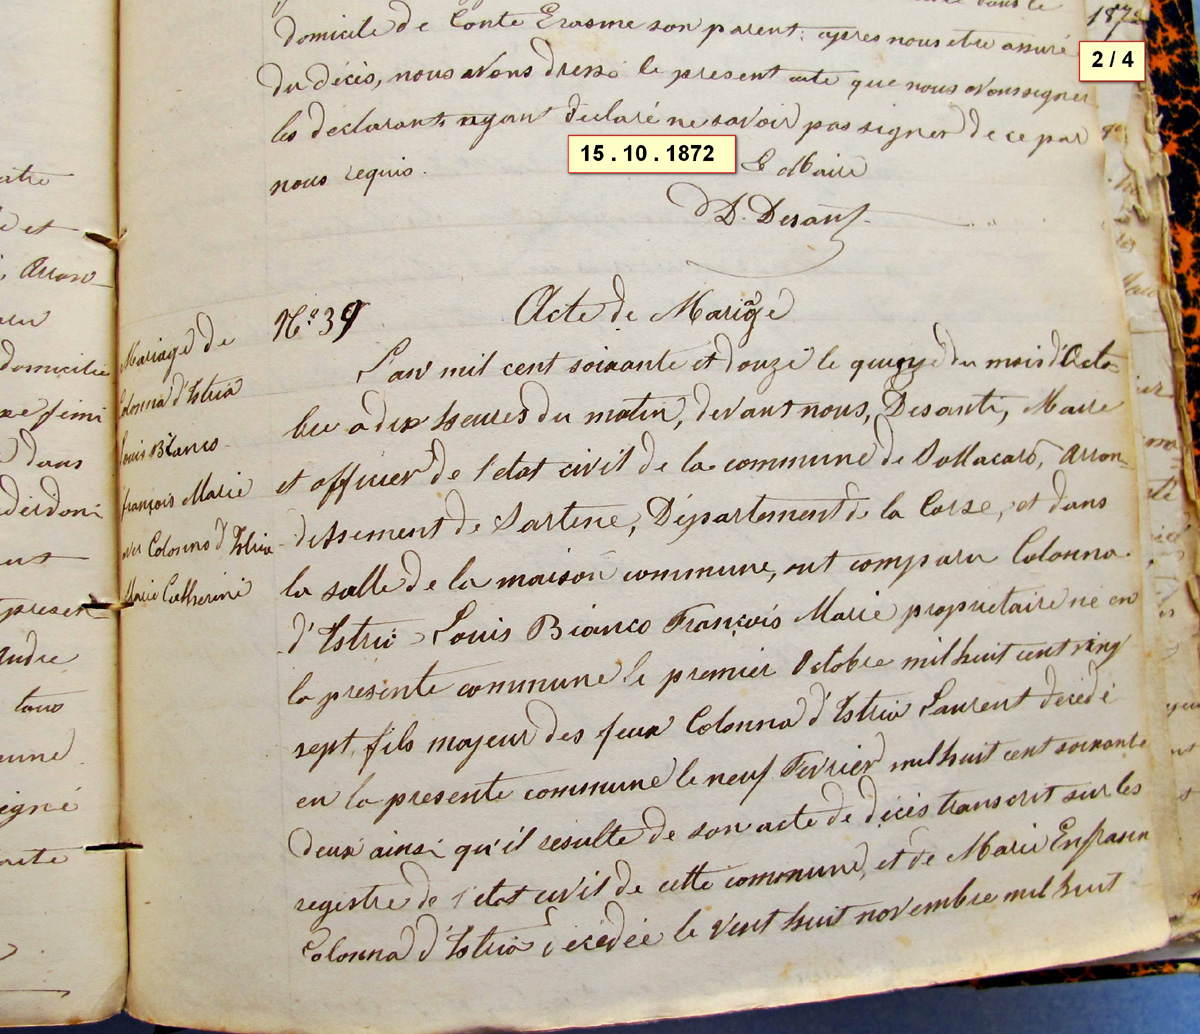 domicile de Conte Erasme son parent; apres nous etre assuré
du décis, nous avons dressé le present acte que nous avons signer
les declarants ayant declaré ne savoir pas signer de ce par
nous requis.
Le Maire
D. Desanti
187
2 / 4
15 . 10 . 1872
N.º 39
Acte de Mariage
Mariage de
Colonna d'Istria
Louis Bianco
François Marie
avec Colonna d'Istria
Marie Catherine
L'an mil cent soixante et douze le quinze du mois d'Octo-
bre a dix heures du matin, devant nous, Desanti, Maire
et officier de l'etat civil de la commune de Sollacaro, Arron-
dissement de Sartene, Département de la Corse, et dans
la salle de la maison commune, ont comparu Colonna
d'Istria Louis Bianco François Marie proprietaire né en
la présente commune le premier Octobre mil huit cent vingt
sept, fils majeur des feux Colonna d'Istria Laurent decedé
en la presente commune le neuf Fevrier mil huit cent soixante
deux ainsi qu'il résulte de son acte de décis transcrit sur les
registre de l'etat civil de cette commune, et de Marie
Colonna d'Istria decedée le vent huit novembre mil huit
atre
et
domicilié
dans
presen-
Andre
signé